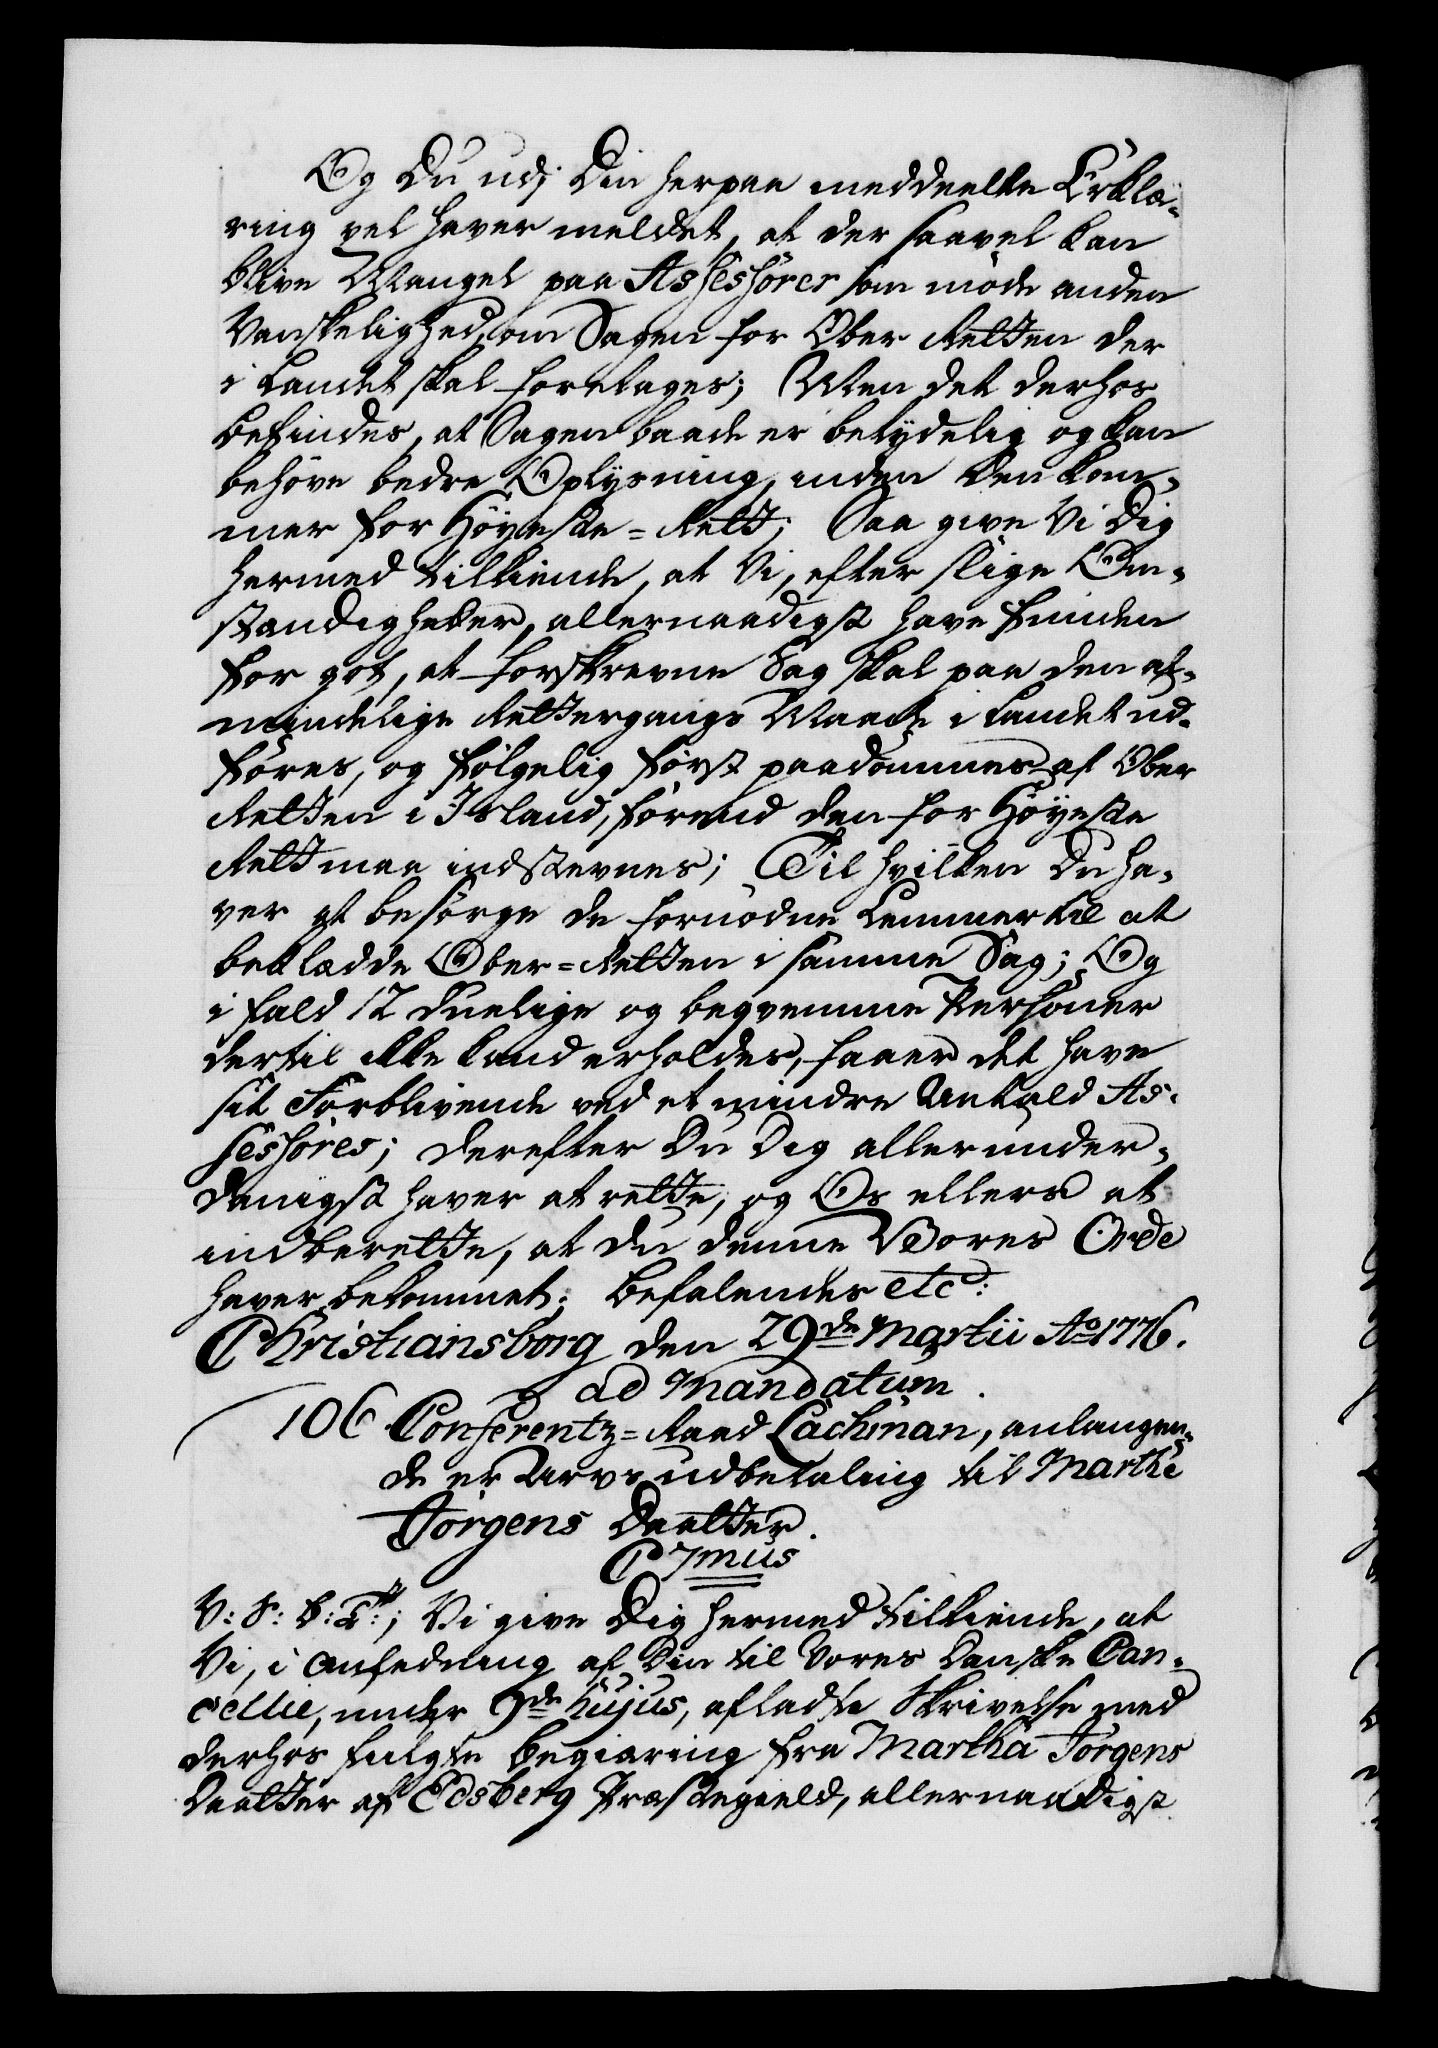 Og Du udj Din herpaa meddeelte Erklæ-
ring vel haver meldet, at der saavel kan
blive Mangel paa Assessorer som møde anden
Vanskelighed, om Sagen for Ober Retten der
i Landet skal foretages; Men det derhos
befindes, at Sagen baade er betydelig og kan
behöve bedre Oplysning, inden den kom-
mer for Höyeste-Rett; Saa give Vi Dig
hermed tilkiende, at Vi, efter slige Om-
stændigheder, allernaadigst have funden
for got, at forskrevne Sag skal paa den al-
mindelige Rettergangs Maade i Landet ud-
föres, og fölgelig först paadömmes af Ober
Retten i Island, förend den for Höyeste
Rett maa indstevnes; Til hvilken Du ha-
ver at besörge de fornödne Lemmer til at
beklædde Ober-Retten i samme Sag; Og
i fald 12 duelige og beqvemme Personer
dertil ikke kand erholdes, faaer det have
sit Forblivende ved et mindre Antal As-
sessores; derefter Du Dig allerunder-
danigst haver at rette, og Os ellers at
indberette, at Du denne Vores Ordre
haver bekommet; befalendes etc:
Christiansborg den 29de Martii Ao 1776.
ad Mandatum.
106 Conferentz-Raad Lachman, anlangen-
de en Arvs udbetaling til Marthe
Jörgens Daatter.
C 7mus
V: S: b: T:; Vi give Dig hermed tilkiende, at
Vi, i Anledning af Din til Vores Danske Can-
cellie, under 9de hujus, afladte Skrivelse med
derhos fulgte begiæring fra Martha Jörgens
Daatter af Edsberg Præstegield, allernaadigst